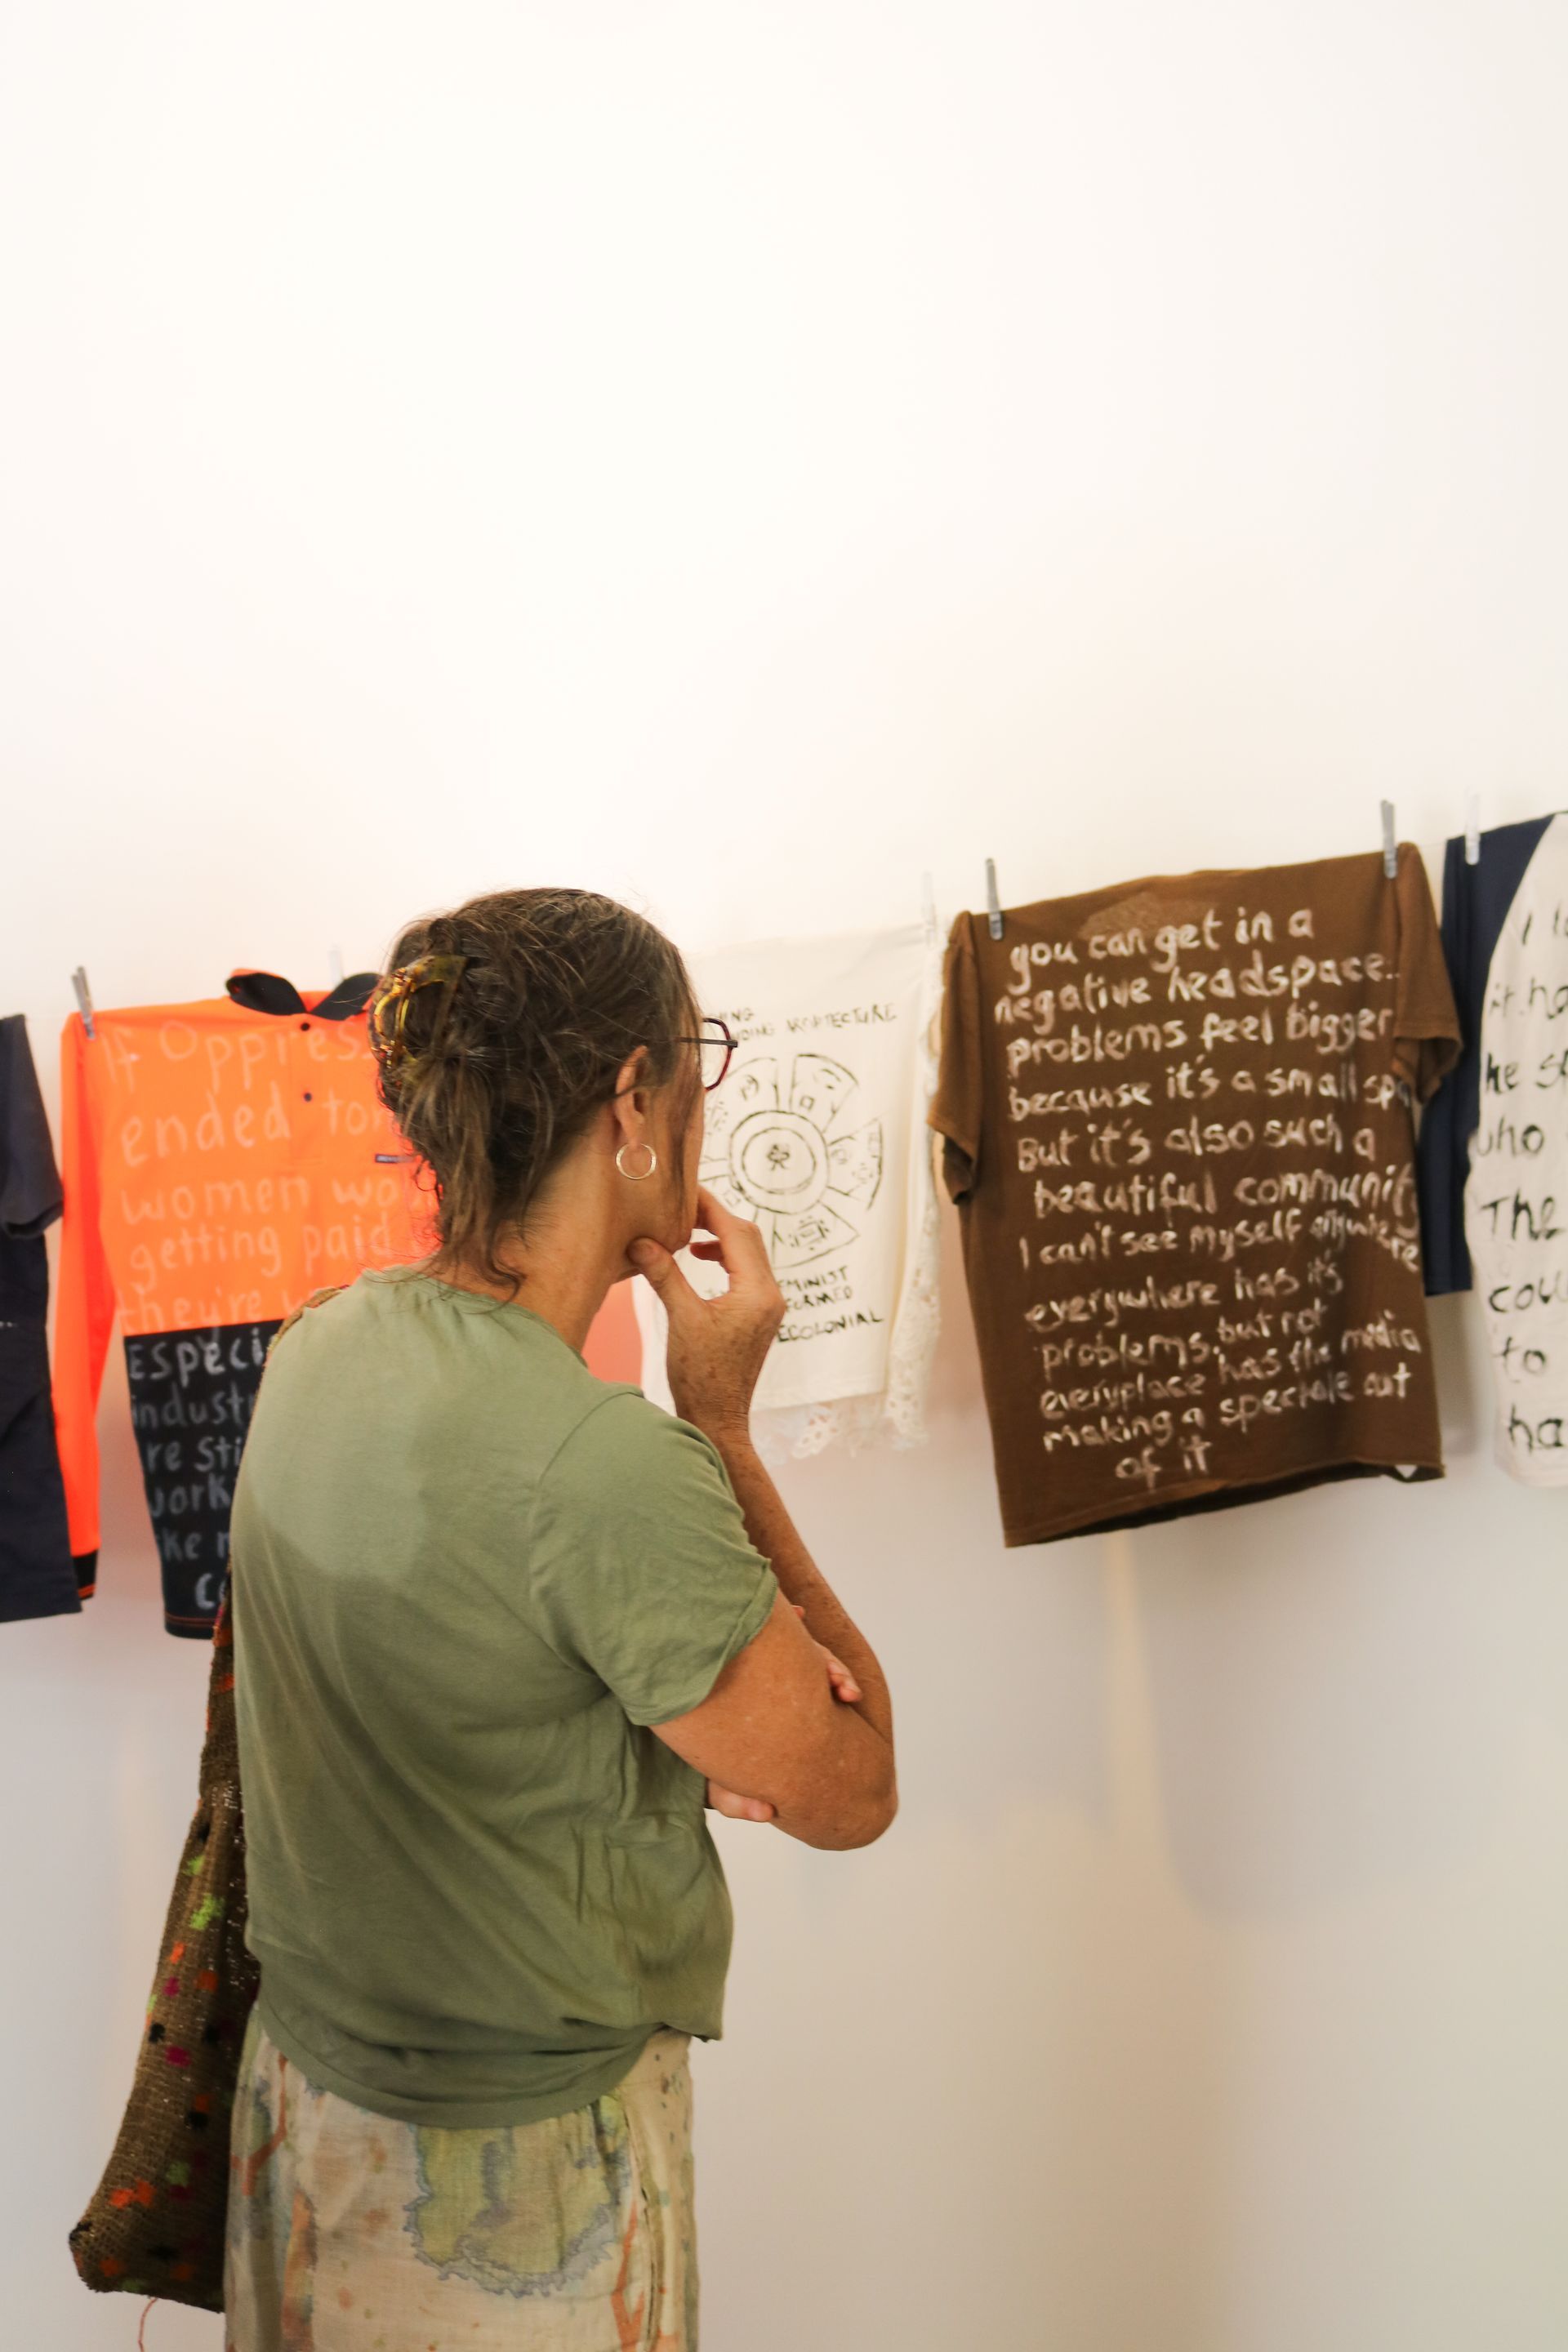 If Oppress
ended to
women wo
getting paid
they're
Especi
indust
re sti
work
ke
NING
ECTURE
EMINIST
FORMED
ECOLONIAL
you can get in a
negative headspace..
problems feel bigger
because it's a small spa
But it's also such a
beautiful community
I can't see myself anywhere
everywhere has it's
problems, but not
everyplace has the media
making a spectacle out
of it
I
it.
he s
who
The
coul
to
ha